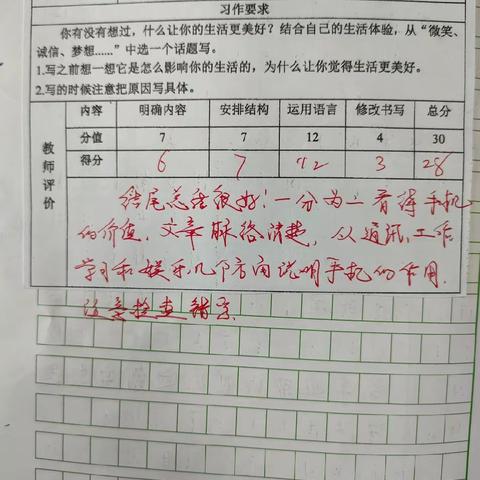 习作要求
你有没有想过，什么让你的生活更美好？结合自己的生活体验，从“微笑、
诚信、梦想......”中选一个话题写。
1.写之前想一想它是怎么影响你的生活的，为什么让你觉得生活更美好。
2.写的时候注意把原因写具体。
教师评价
内容 明确内容 安排结构 运用语言 修改书写 总分
分值 7 7 12 4 30
得分 6 7 12 3 28
结尾总结很好！一分为二看待手机
的价值，文章脉络清楚，从通讯、工作
学习和娱乐几个方面说明手机的作用。
注意检查错字